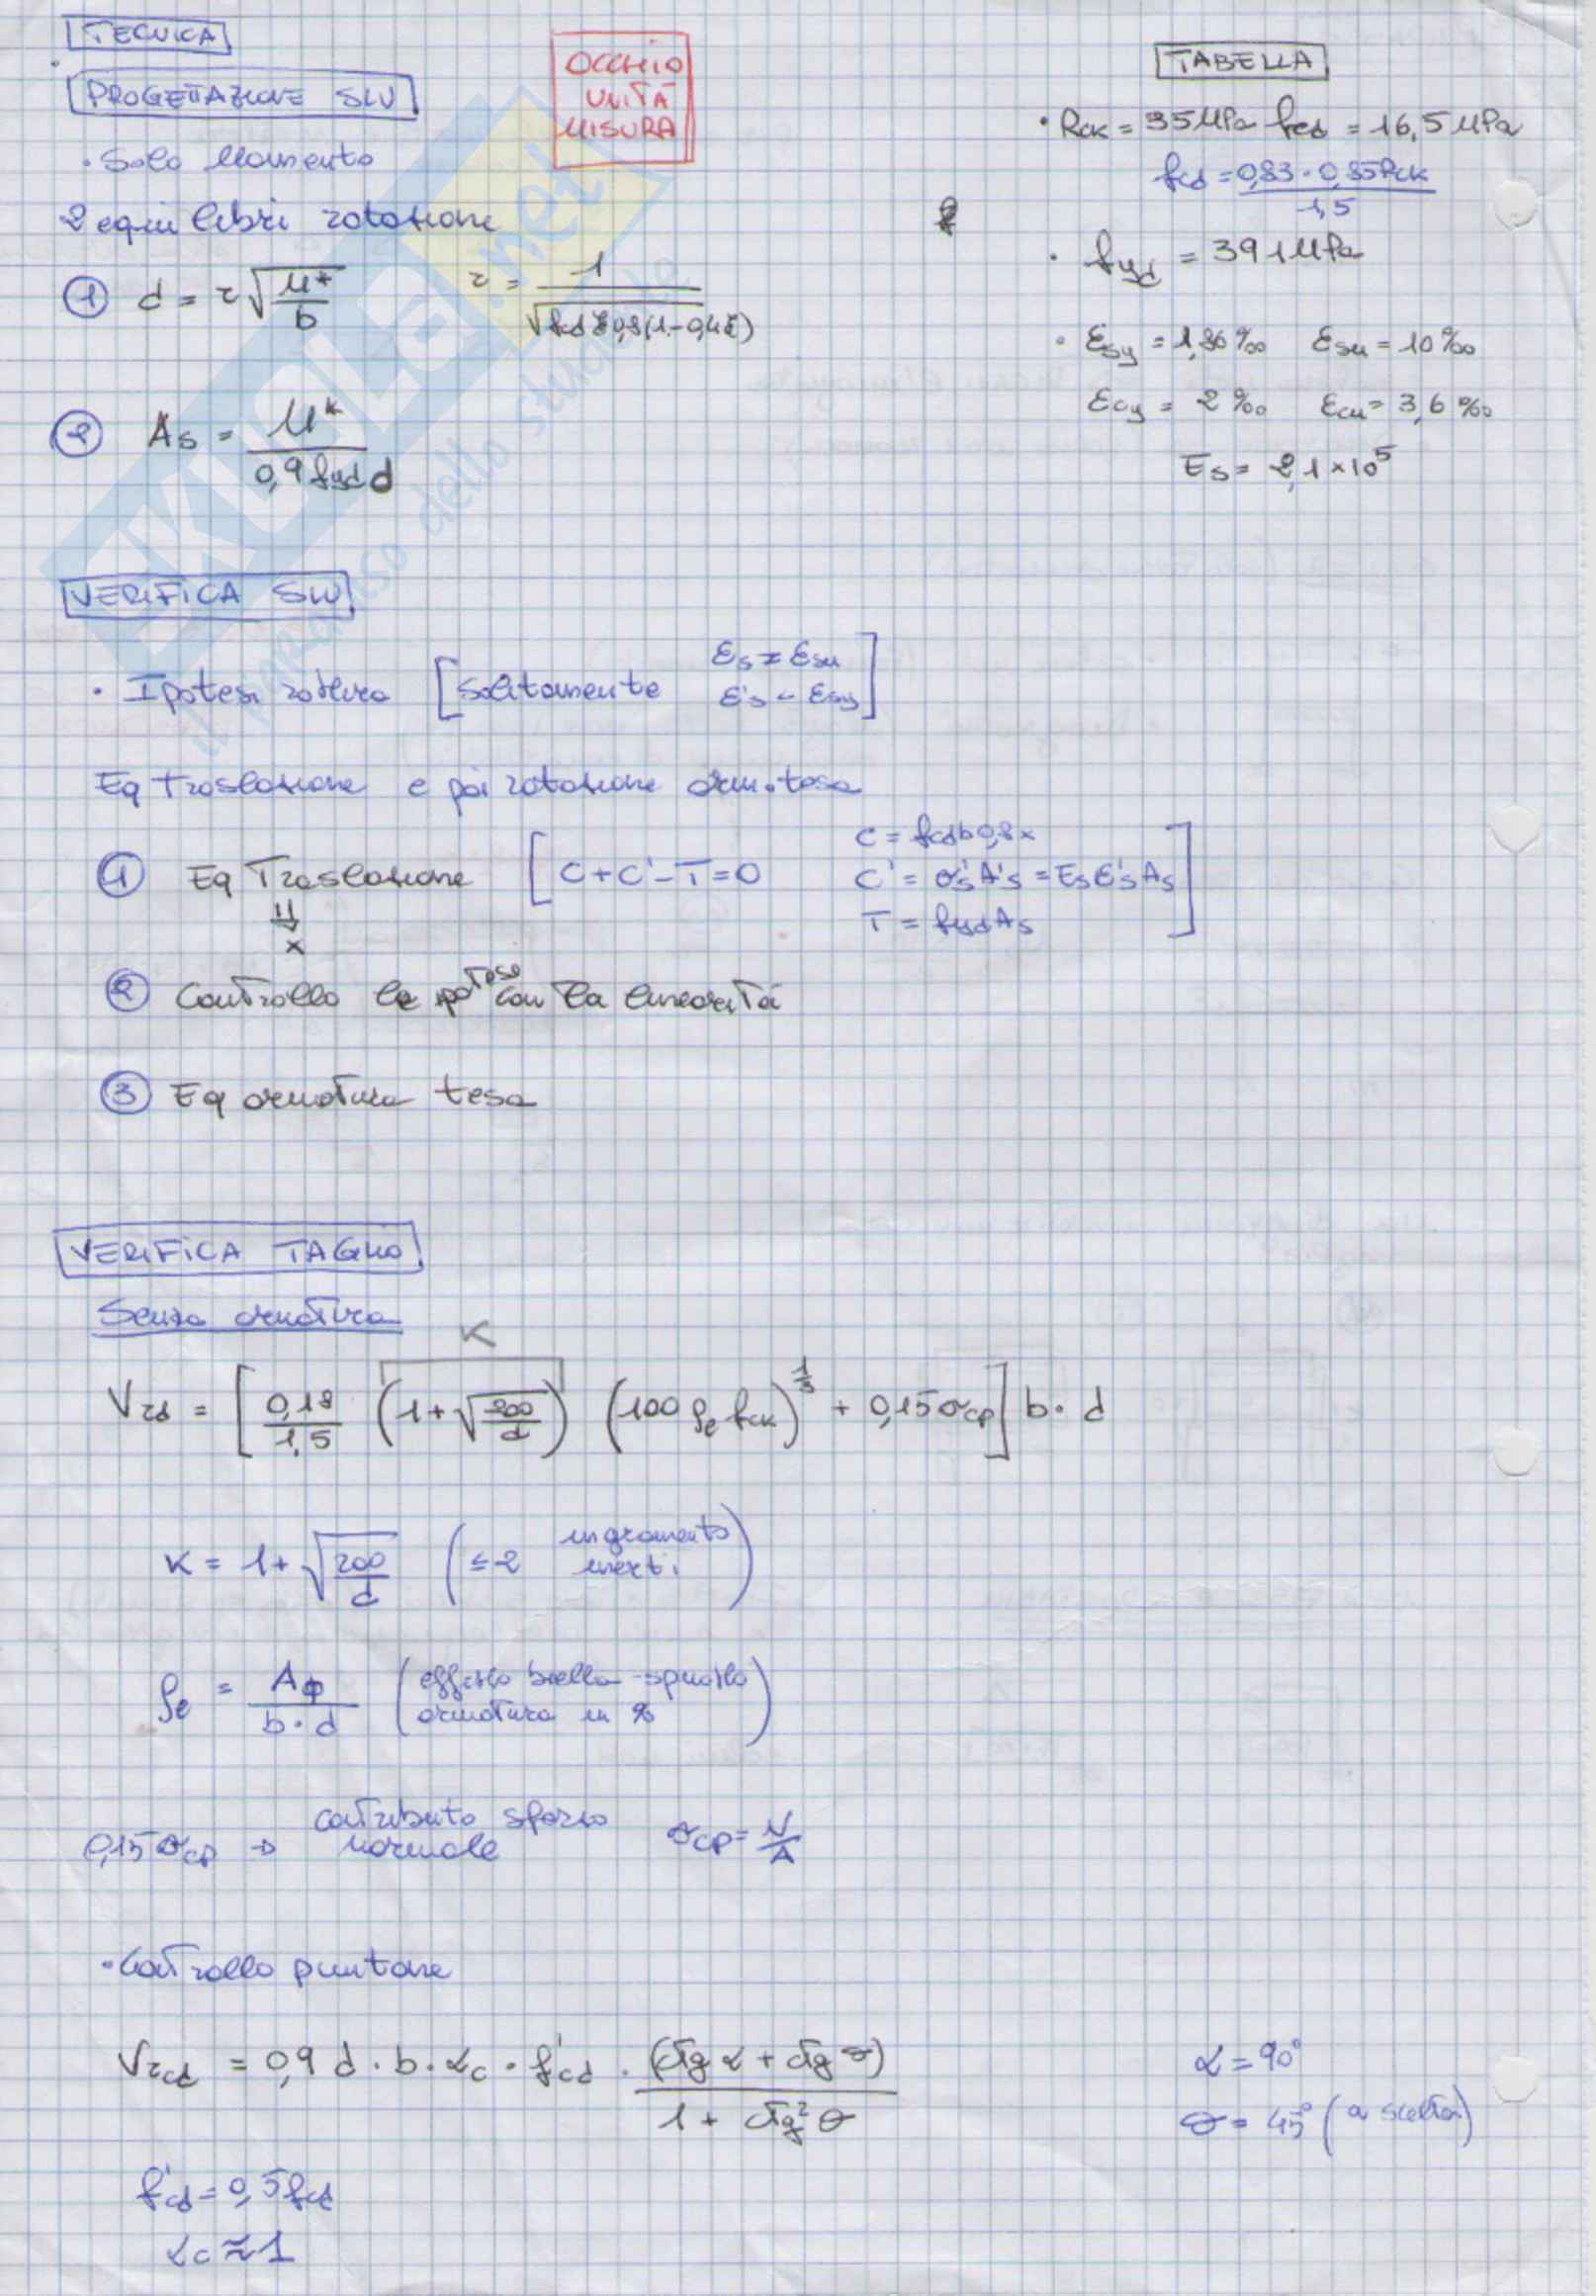 TECNICA
PROGETTAZIONE SLU
OCCHIO
UNITÀ
MISURA
TABELLA
• Solo Momento
2 equilibri rotazione
① d = r √(M*/b)   r = 1/√(fcd ξ 0,8(1-0,4ξ))
② As = M*/(0,9 fyd d)
• Rck = 35 MPa fcd = 16,5 MPa
fcd = 0,83 · 0,85 Rck / 1,5
• fyd = 391 MPa
• εsy = 1,86 ‰   εsu = 10 ‰
εcy = 2 ‰   εcu = 3,6 ‰
Es = 2,1 × 10⁵
SKUOLA.net
il paradiso dello studente
VERIFICA SLU
• Ipotesi rottura [Solitamente εs = εsu
ε's < εsy]
Eq Traslazione e poi rotazione arm. tesa
① Eq Traslazione [C + C' - T = 0   C = fcd b 0,8x
C' = σ's A's = Es ε's As
T = fyd As]
⇓
x
② Controllo le ipotesi con la linearità
③ Eq armatura tesa
VERIFICA TAGLIO
Senza armatura
K
Vrd = [0,18/1,5 (1 + √(200/d)) (100 ρe fck)^1/3 + 0,15 σcp] b · d
K = 1 + √(200/d)   (≤ 2 ingranamento
inerti)
ρe = AΦ/(b · d)   (effetto bietta - spinotto
armatura in %)
0,15 σcp → contributo sforzo
normale   σcp = N/A
• Controllo puntone
Vrcd = 0,9 d · b · αc · f'cd · (ctg α + ctg θ)/(1 + ctg² θ)
α = 90°
θ = 45° (a scelta)
f'cd = 0,5 fcd
αc ≈ 1